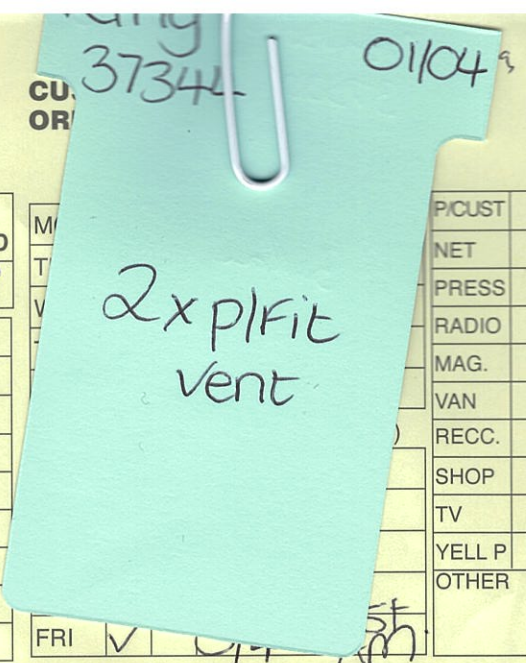 37344
01/04
CU
ORI
2x p/Fit
vent
P/CUST
NET
PRESS
RADIO
MAG.
VAN
RECC.
SHOP
TV
YELL P
OTHER
FRI